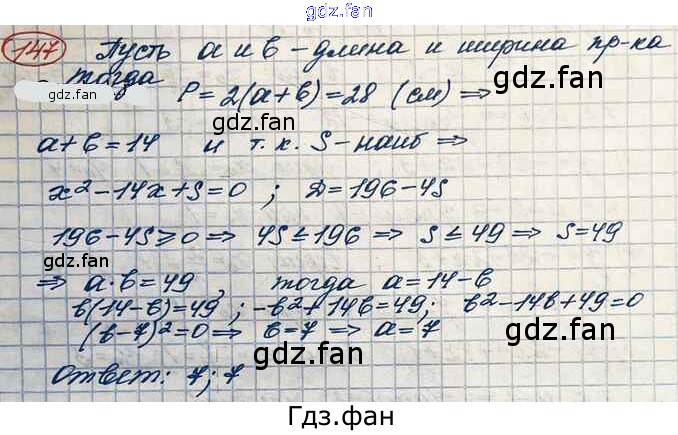 gdz.fan
147 Пусть a и b - длина и ширина пр-ка
gdz.fan
тогда P = 2(a+b) = 28 (см) ⇒
gdz.fan
gdz.fan
gdz.fan
a+b=14 и т.к. S-наиб ⇒
x²-14x+S=0 ; D=196-4S
196-4S≥0 ⇒ 4S≤196 ⇒ S≤49 ⇒ S=49
⇒ a·b=49, тогда a=14-b
gdz.fan
gdz.fan
b(14-b)=49 ; -b²+14b=49; b²-14b+49=0
(b-7)²=0 ⇒ b=7 ⇒ a=7
gdz.fan
gdz.fan
Ответ: 7; 7
Гдз.фан